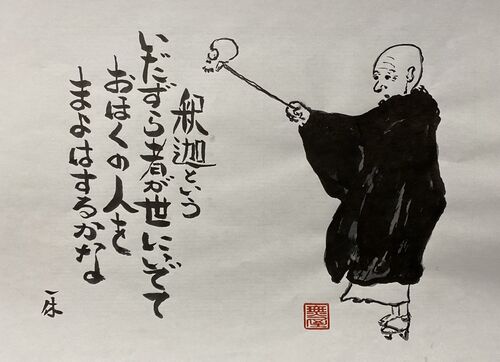 釈迦という
いたずら者が世にいでて
おほくの人を
まよはするかな
一休